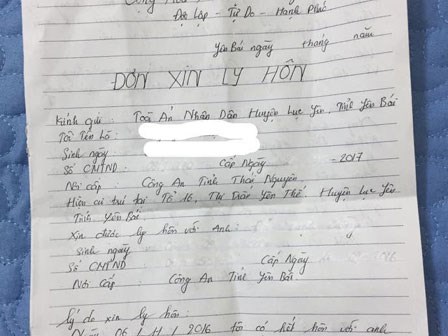 Độc Lập - Tự Do - Hạnh Phúc
Yên Bái ngày tháng năm
ĐƠN XIN LY HÔN
Kính gửi: Toà Án Nhân Dân Huyện Lục Yên, Tỉnh Yên Bái
Tôi Tên Là
Sinh ngày
Số CMTND Cấp Ngày -2017
Nơi cấp Công An Tỉnh Thái Nguyên
Hiện cư trú tại Tổ 16, Thị Trấn Yên Thế Huyện Lục Yên
Tỉnh Yên Bái
Xin được ly hôn với Anh:
Sinh ngày
Số CMTND Cấp Ngày
Nơi Cấp Công An Tỉnh Yên Bái
Lý do xin ly hôn:
06 / 11 / 2016 tôi có kết hôn với anh